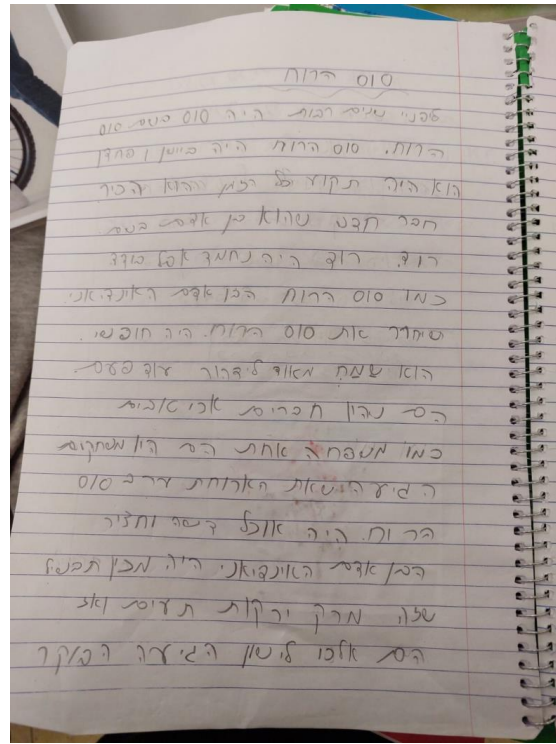 סוס הרוח
לפני שנים רבות היה סוס בשם סוס
הרוח. סוס הרוח היה ביישן ופחדן
הוא היה תקוע כל הזמן והוא הכיר
חבר חדש שהוא בן אדם בשם
רוד. רוד היה נחמד אבל בודד
כמו סוס הרוח הבן אדם האינדיאני.
שיחרר את סוס הרוח. היה חופשי.
הוא שמח מאוד לידהור עוד פעם.
הם נהיו חברים אכי טובים
כמו משפחה אחת הם היו משחקים
הגיעה שאת הארוחת ערב סוס
הרוח. היה אוכל דשה וחציר
הבן אדם האינדיאני היה מכין תבשיל
שזה מרק ירקות תעים ואז
הם אלכו לישון הגיעה הבוקר